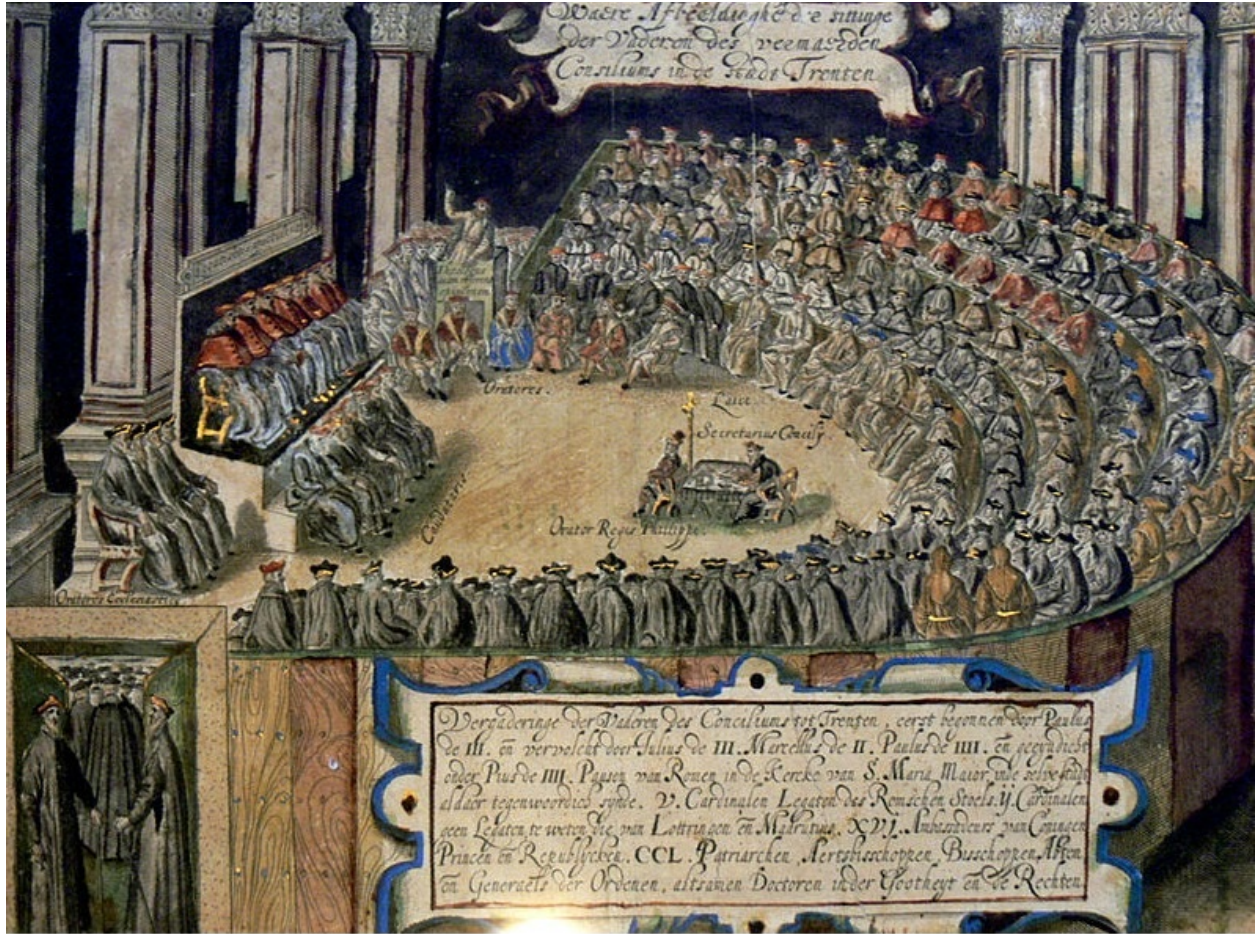 Waere Afbeeldinghe der sittinge
der Vaderen des vermaerden
Consiliums in de stadt Trenten
Oratores.
Laici.
Secretarius Concilÿ.
Orator Regis Philippi.
Oratores Ecclesiastici
Vergaderinge der Vaderen des Conciliums tot Trenten, eerst begonnen door Paulus
de III. en̄ vervolcht door Iulius de III. Marcellus de II. Paulus de IIII. en̄ geeyndicht
onder Pius de IIII. Pausen van Romen in de Kercke van S. Maria Maior, inde selve stadt
aldaer tegenwoordich synde. V. Cardinalen Legaten des Romschen Stoels. ij. Cardinalen
geen Legaten, te weten die van Lottringen en̄ Madrutius. XVJ. Ambassadeurs van Coningen
Princen en̄ Republycken. CCL. Patriarchen Aertsbisschoppen Bisschoppen Abten
en̄ Generaels der Ordenen, altsamen Doctoren inder Gootheyt en̄ de Rechten